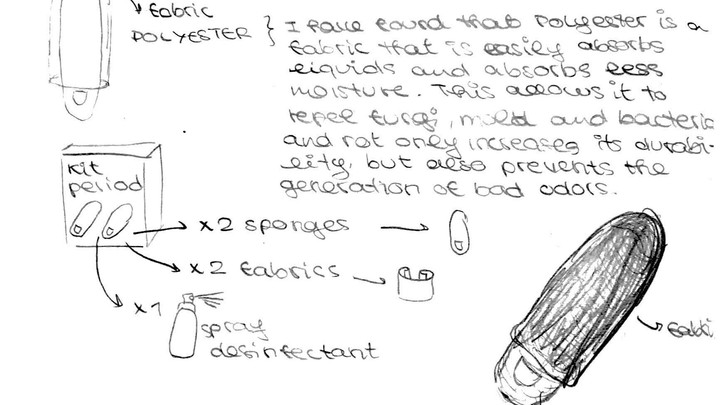 fabric
POLYESTER
I have found that Polyester is a
fabric that is easily absorbs
liquids and absorbs less
moisture. This allows it to
repel fungi, mold and bacteric
and not only increases its durabi-
lity, but also prevents the
generation of bad odors.
Kit
period
x2 sponges
x2 fabrics
x1
spray
desinfectant
fabri